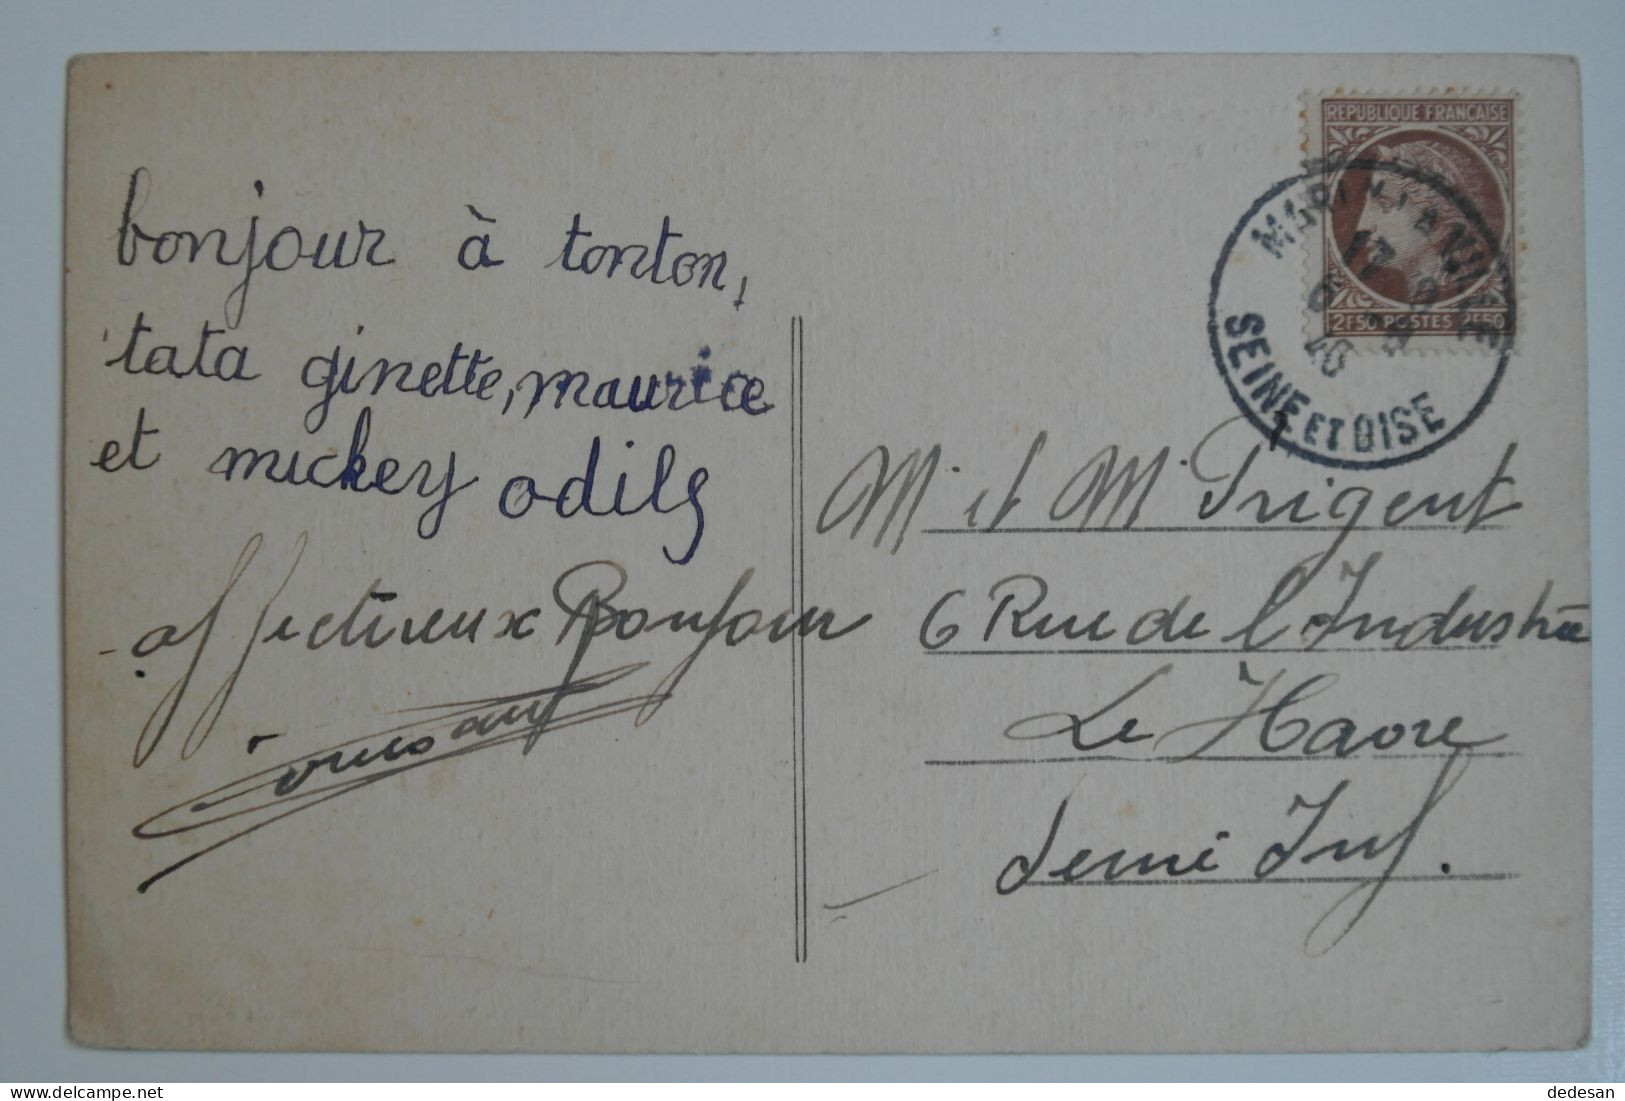 bonjour à tonton,
tata ginette, maurice
et mickey odile
affectueux Bonjour
REPUBLIQUE FRANÇAISE
2F50 POSTES 2F50
17
SEINE ET OISE
M. et M. Prigent
6 Rue de l'Industrie
Le Havre
Seine Inf.
dedesan